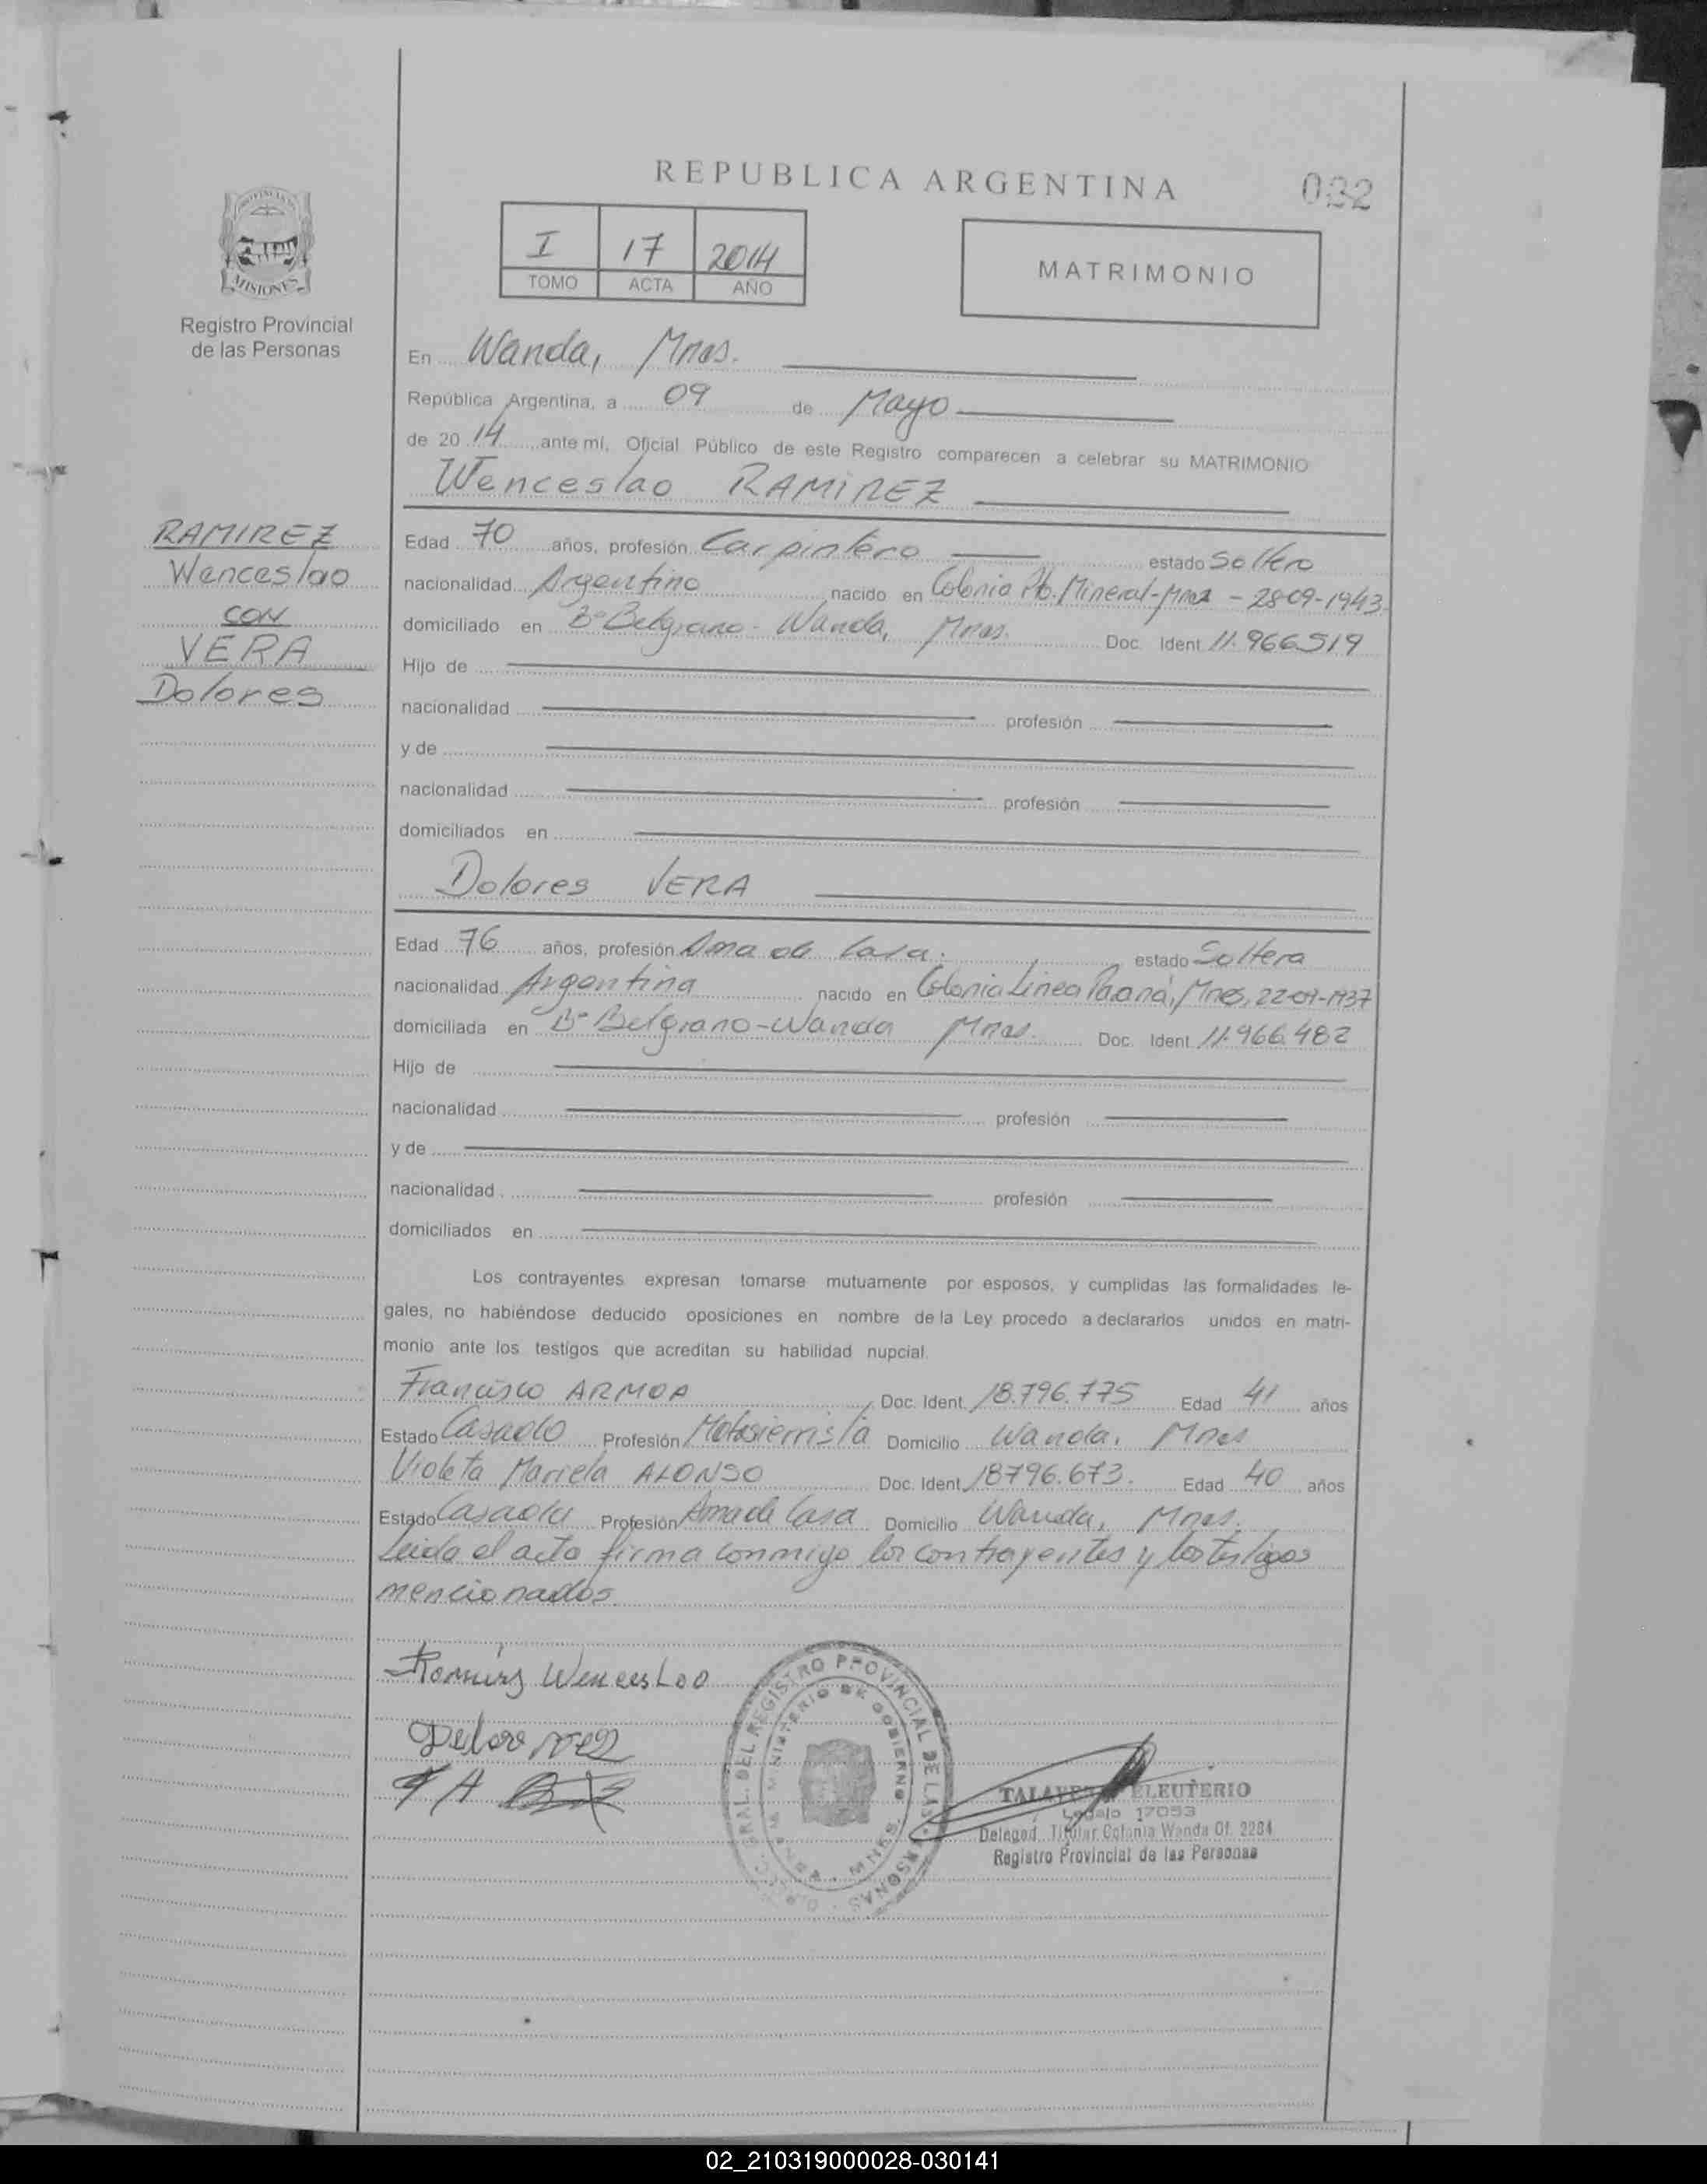 REPUBLICA ARGENTINA
032
PROVINCIA DE
MISIONES
Registro Provincial
de las Personas
I 17 2014
TOMO ACTA AÑO
MATRIMONIO
En Wanda, Mnes.
República Argentina, a 09 de Mayo
de 2014 ante mí, Oficial Público de este Registro comparecen a celebrar su MATRIMONIO
Wenceslao RAMIREZ
RAMIREZ
Wenceslao
CON
VERA
Dolores
Edad 70 años, profesión Carpintero estado Soltero
nacionalidad Argentino nacido en Colonia Pto. Mineral-Mnes - 28-09-1943
domiciliado en Bº Belgrano - Wanda, Mnes. Doc. Ident 11.966519
Hijo de
nacionalidad profesión
y de
nacionalidad profesión
domiciliados en
Dolores VERA
Edad 76 años, profesión Ama de Casa. estado Soltera
nacionalidad Argentina nacido en Colonia Linea Paraná, Mnes, 22-07-1937
domiciliada en Bº Belgrano-Wanda Mnes. Doc. Ident 11.966.482
Hijo de
nacionalidad profesión
y de
nacionalidad profesión
domiciliados en
Los contrayentes expresan tomarse mutuamente por esposos, y cumplidas las formalidades le-
gales, no habiéndose deducido oposiciones en nombre de la Ley procedo a declararlos unidos en matri-
monio ante los testigos que acreditan su habilidad nupcial.
Francisco ARMOA Doc. Ident. 18.796.775 Edad 41 años
Estado Casado Profesión Motosierrista Domicilio Wanda, Mnes
Violeta Mariela ALONSO Doc. Ident 18796.673. Edad 40 años
Estado Casada Profesión Ama de Casa Domicilio Wanda, Mnes.
Leida el acta firma conmigo los contrayentes y los testigos
mencionados
Ramirez Wenceslao
REGISTRO PROVINCIAL DE LAS PERSONAS
MINISTERIO DE GOBIERNO
TALAVERA ELEUTERIO
Legajo 17053
Delegad. Titular Colonia Wanda Of. 2284
Registro Provincial de las Personas
02_210319000028-030141